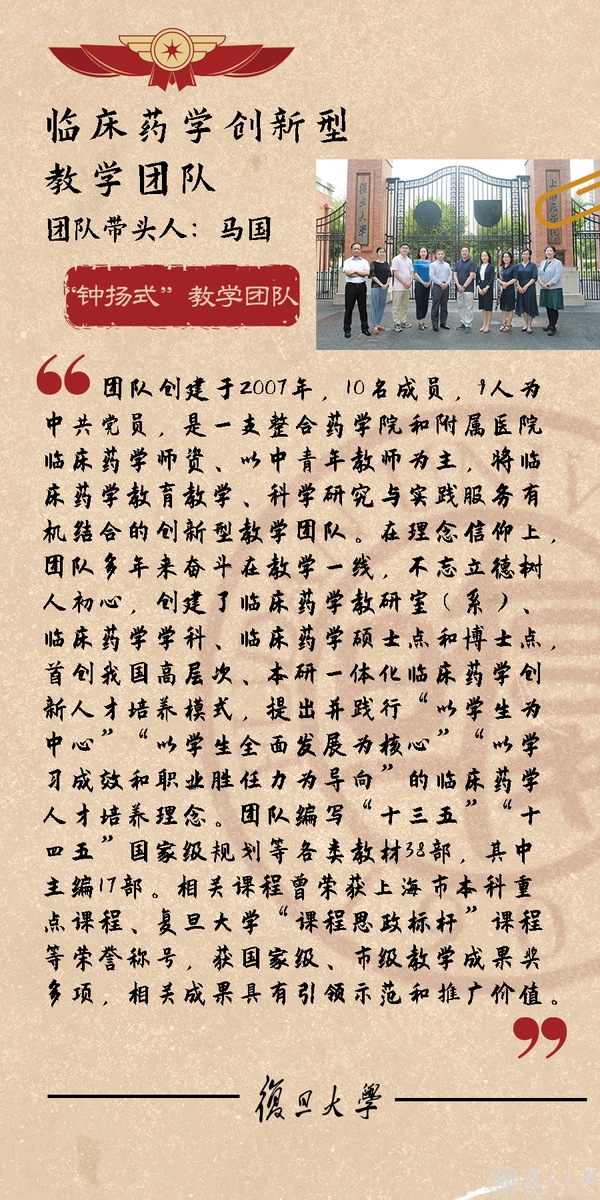 临床药学创新型
教学团队
团队带头人：马国
“钟扬式”教学团队
復旦大學
团队创建于2007年，10名成员，9人为
中共党员，是一支整合药学院和附属医院
临床药学师资、以中青年教师为主，将临
床药学教育教学、科学研究与实践服务有
机结合的创新型教学团队。在理念信仰上，
团队多年来奋斗在教学一线，不忘立德树
人初心，创建了临床药学教研室（系）、
临床药学学科、临床药学硕士点和博士点，
首创我国高层次、本研一体化临床药学创
新人才培养模式，提出并践行“以学生为
中心”“以学生全面发展为核心”“以学
习成效和职业胜任力为导向”的临床药学
人才培养理念。团队编写“十三五”“十
四五”国家级规划等各类教材38部，其中
主编17部。相关课程曾荣获上海市本科重
点课程、复旦大学“课程思政标杆”课程
等荣誉称号，获国家级、市级教学成果奖
多项，相关成果具有引领示范和推广价值。
復旦大學